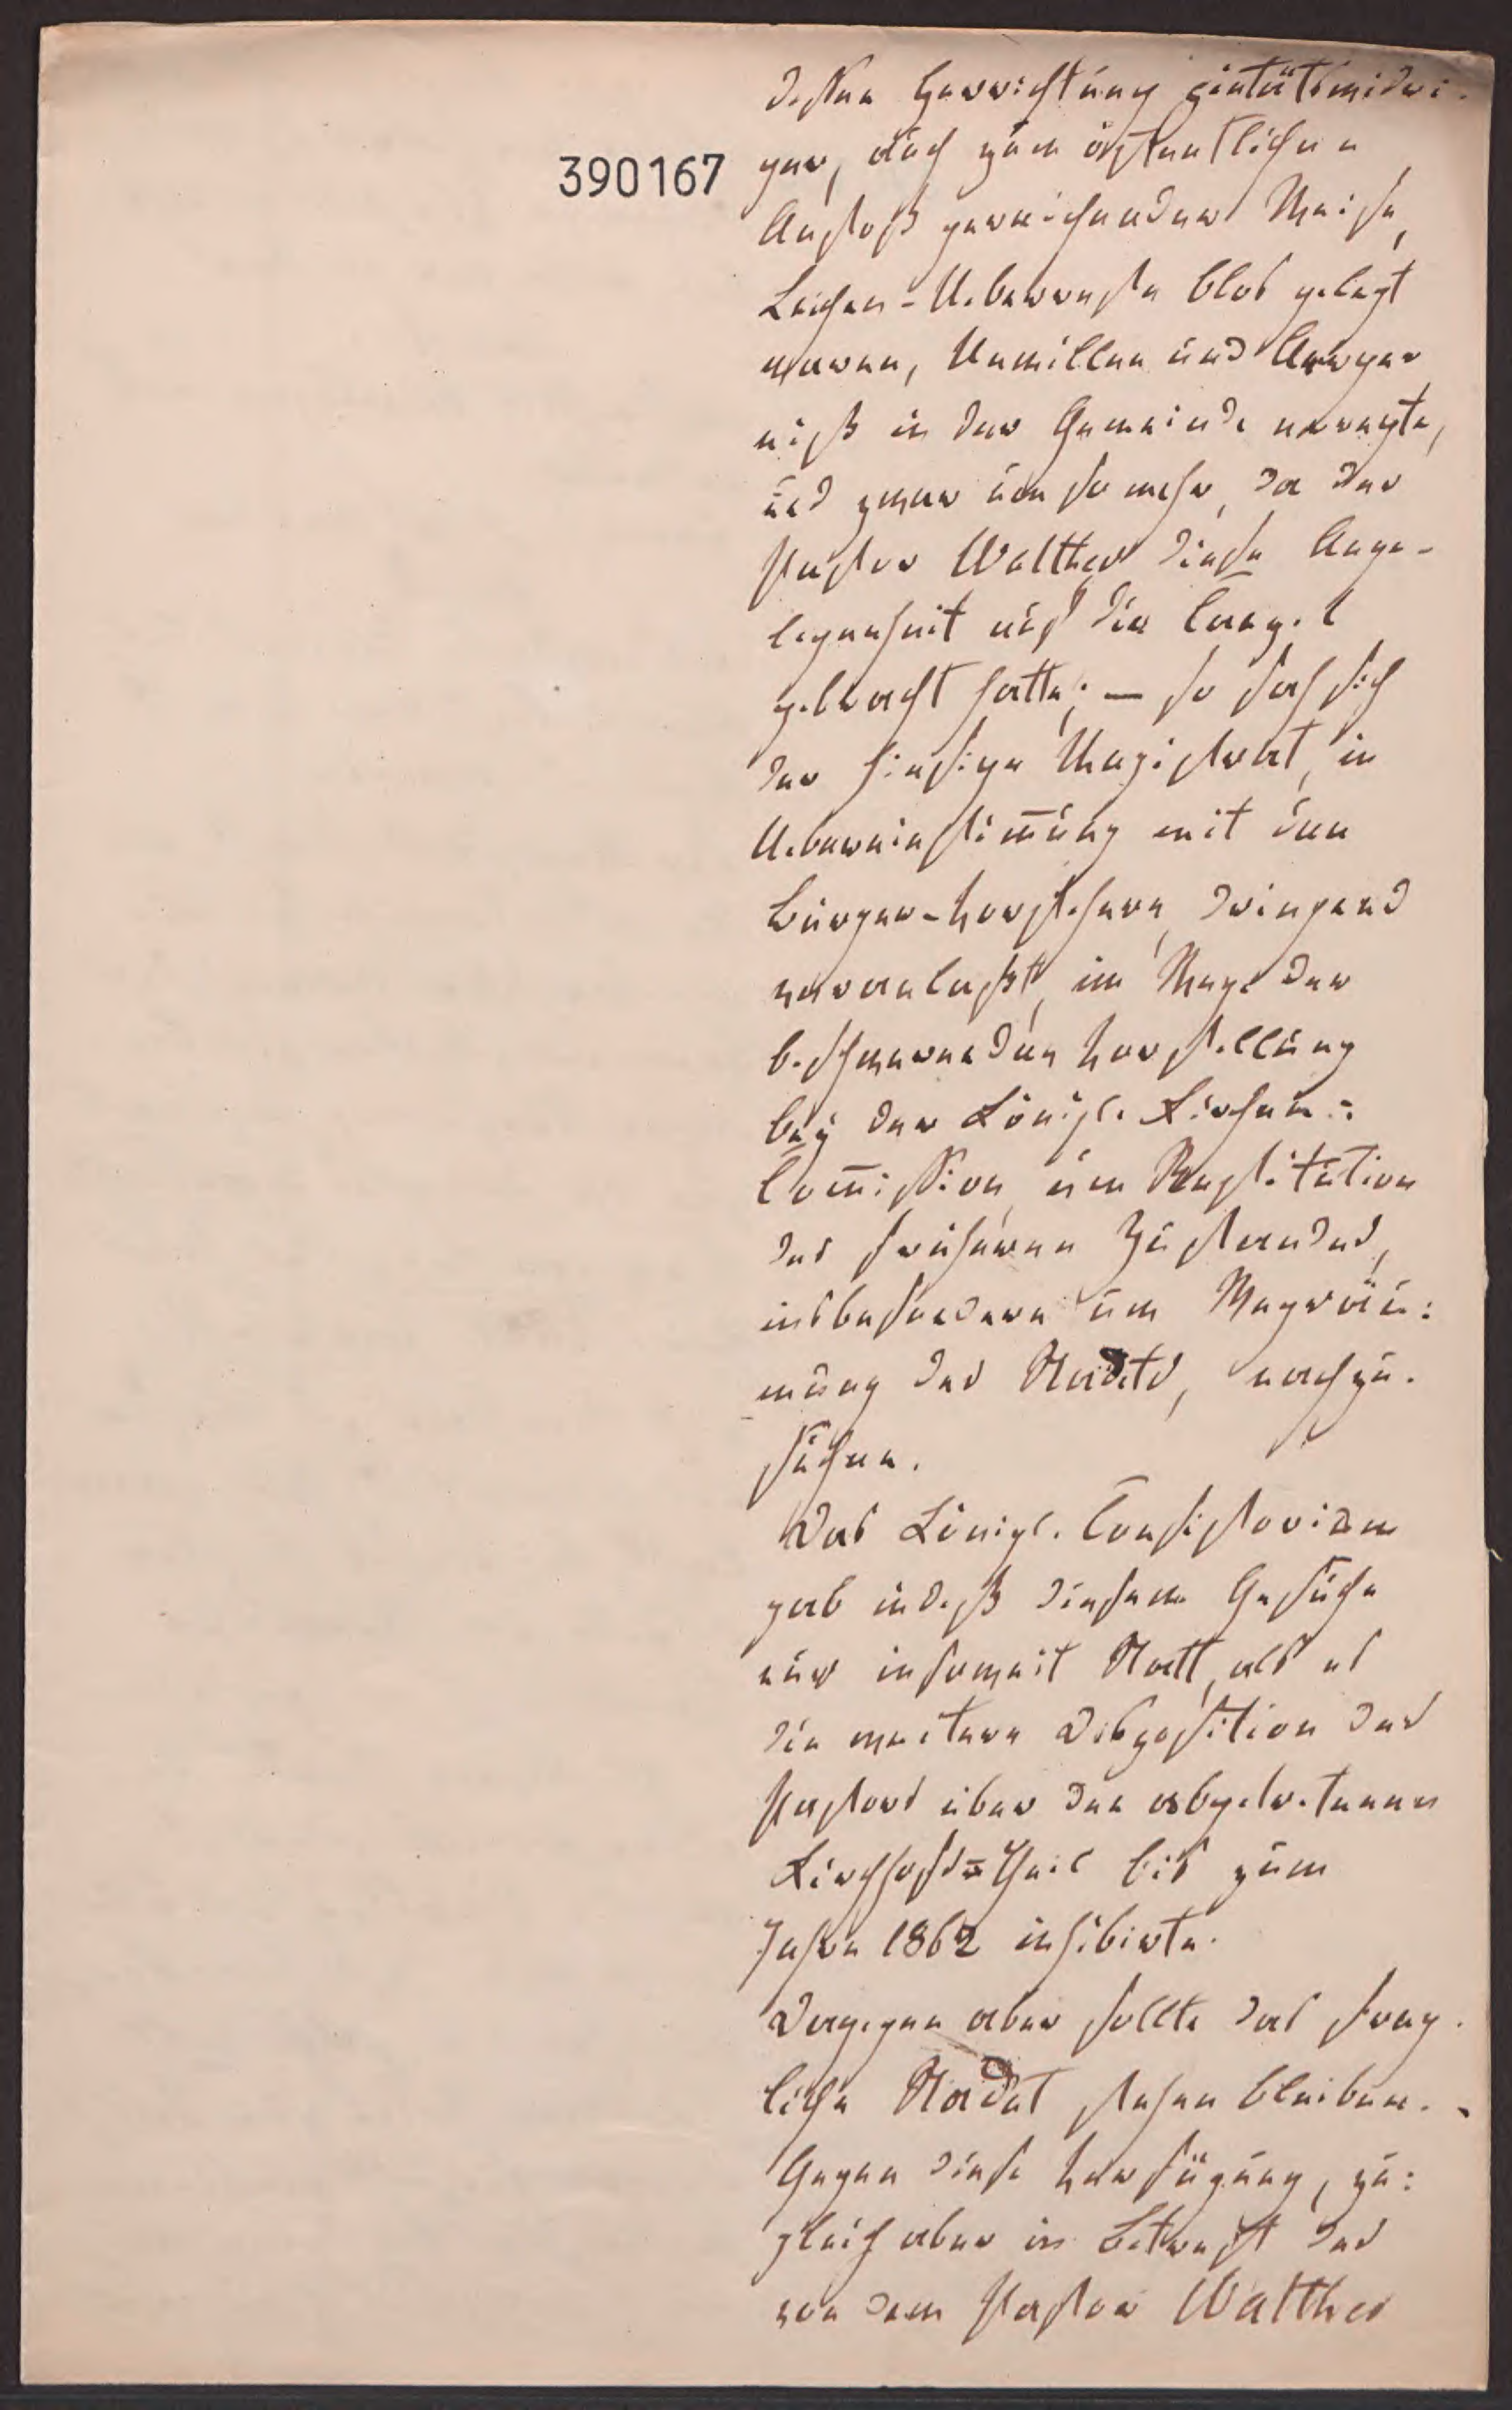 dessen Herrichtung pietätswidri-
390167
ger, auch zum öffentlichen
Anstoß gereichender Weise,
Leichen-Ueberreste blos gelegt
waren, Unwillen und Aerger-
niß in der Gemeinde erregte,
und zwar um so mehr, da der
Pastor Walther diese Ange-
legenheit auf die Canzel
gebracht hatte; — so sah sich
der hiesige Magistrat, in
Uebereinstim̅ung mit den
Bürger-Vorstehern, dringend
veranlaßt, im Wege der
beschwerenden Vorstellung
bey der Königl. Kirchen-
Com̅ission, um Restitution
des früheren Zustandes,
insbesondere um Wegräu-
mung des Stackets, nachzu-
suchen.
Das Königl. Consistorium
gab indeß diesem Gesuche
nur insoweit Statt, als es
die weitere Disposition des
Pastors über den abgetretenen
Kirchhofs-Theil bis zum
Jahre 1862 inhibirte.
Dagegen aber sollte das frag-
liche Stacket stehen bleiben. -
Gegen diese Verfügung, zu-
gleich aber in Betreff des
von dem Pastor Walther